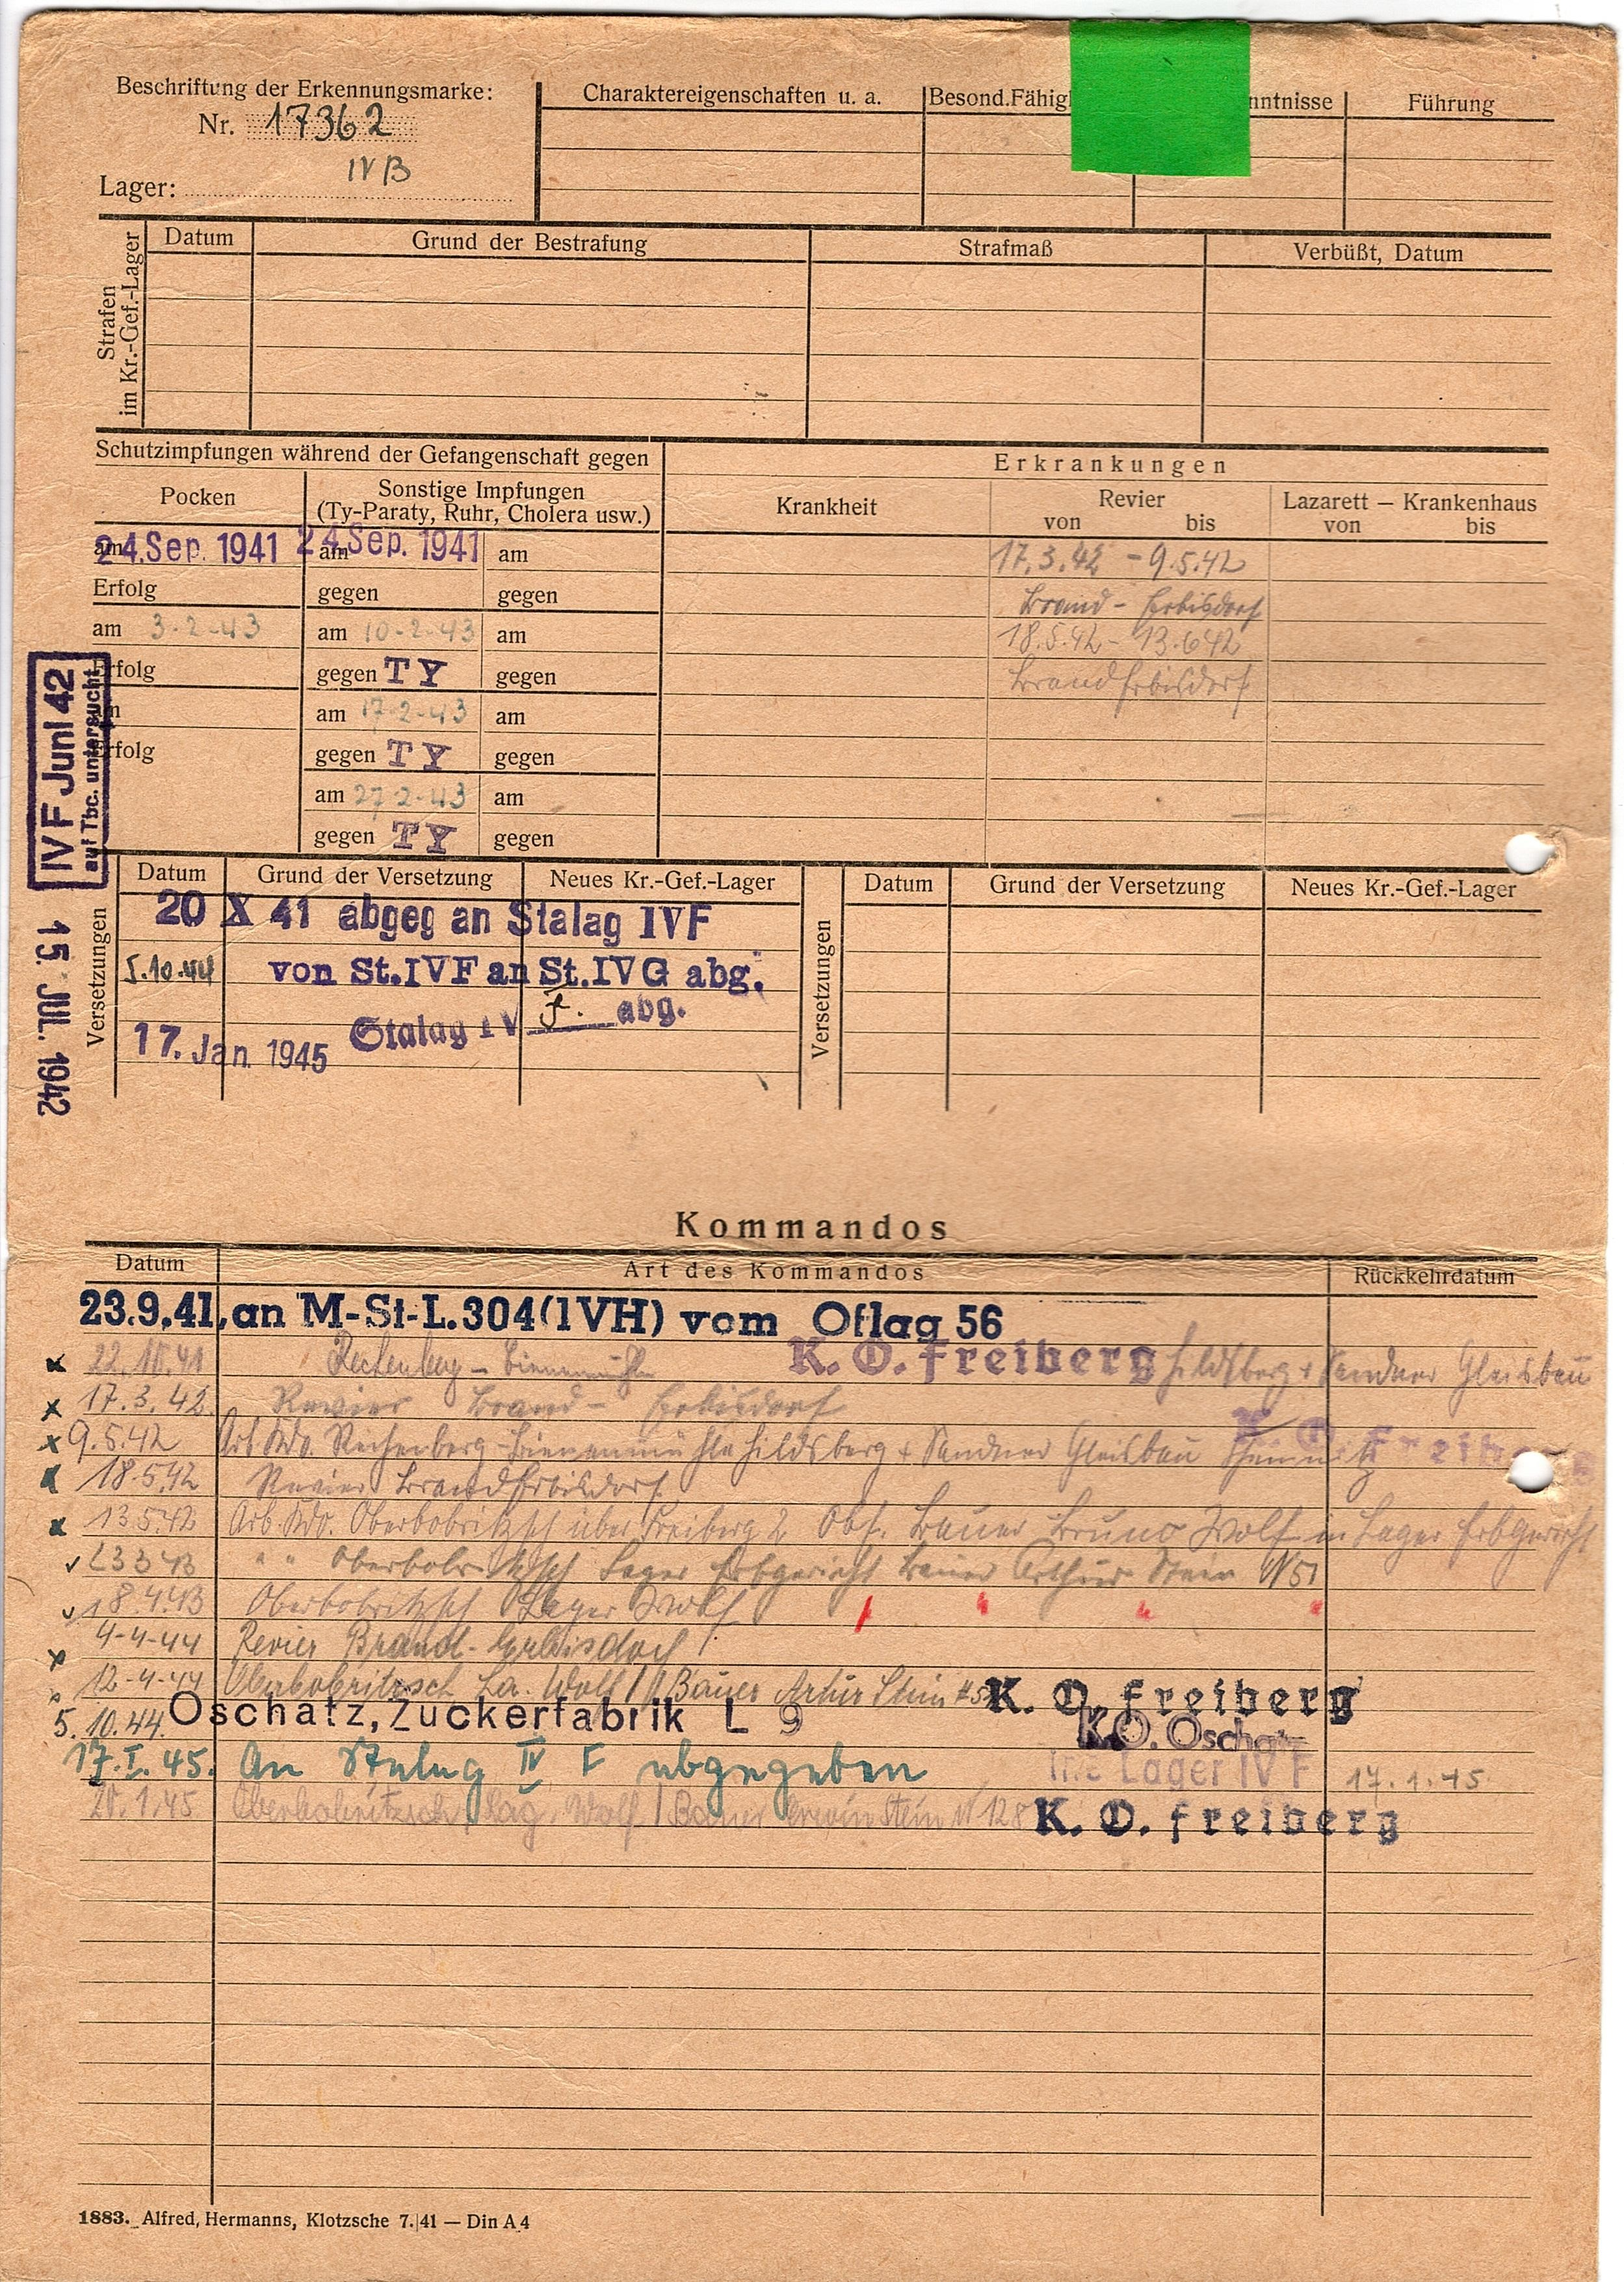 Beschriftung der Erkennungsmarke:
Nr. 17362
IV B
Lager:
Charaktereigenschaften u. a.
Besond.Fähig
nntnisse
Führung
Strafen
im Kr.-Gef.-Lager
Datum
Grund der Bestrafung
Strafmaß
Verbüßt, Datum
Schutzimpfungen während der Gefangenschaft gegen
Pocken
Sonstige Impfungen
(Ty-Paraty, Ruhr, Cholera usw.)
am 24.Sep. 1941
am 24.Sep. 1941
am
Erfolg
gegen
gegen
am 3-2-43
am 10-2-43
am
Erfolg
gegen TY
gegen
am
am 17-2-43
am
Erfolg
gegen TY
gegen
am 27-2-43
am
gegen TY
gegen
Erkrankungen
Krankheit
Revier
von bis
Lazarett — Krankenhaus
von bis
17.3.42 - 9.5.42
Brand - Erbisdorf
18.5.42 - 13.6.42
Brand Erbisdorf
IV F Juni 42
auf Tbc. untersucht
15. JUL. 1942
Versetzungen
Datum
Grund der Versetzung
Neues Kr.-Gef.-Lager
20 X 41 abgeg an Stalag IVF
5.10.44 von St.IVF an St.IVG abg.
17. Jan. 1945 Stalag IV F. abg.
Versetzungen
Datum
Grund der Versetzung
Neues Kr.-Gef.-Lager
Kommandos
Datum
Art des Kommandos
Rückkehrdatum
23.9.41, an M-St-L.304(IVH) vom Oflag 56
Rechenberg - Bienenmühle K. O. Freiberg Hildsberg + Sandner Gleisbau
17.3.42. Revier Brand - Erbisdorf
9.5.42 Arb. Kdo. Rechenberg-Bienenmühle Hildsberg + Sandner Gleisbau Chemnitz K. O. Freiberg
18.5.42 Revier Brand Erbisdorf
Arb. Kdo. Oberbobritzsch über Freiberg 2 Bauer Bruno Wolf in Lager Erbgericht
" " Oberbobritzsch Lager Erbgericht Bauer Arthur Stein N 51
18.4.43 Oberbobritzsch Lager Wolf
4-4-44 Revier Brand-Erbisdorf
12-4-44 Oberbobritzsch La. Wolf // Bauer Artur Stein K. O. Freiberg
5.10.44. Oschatz, Zuckerfabrik L 9 K.O. Oschatz
17.I.45. An Stalag IV F abgegeben Lager IV F 17.1.45
20.1.45 Oberbobritzsch, Lag. Wolf / Bauer Erwin Stein N 128 K. O. Freiberg
1883. Alfred, Hermanns, Klotzsche 7.|41 — Din A 4